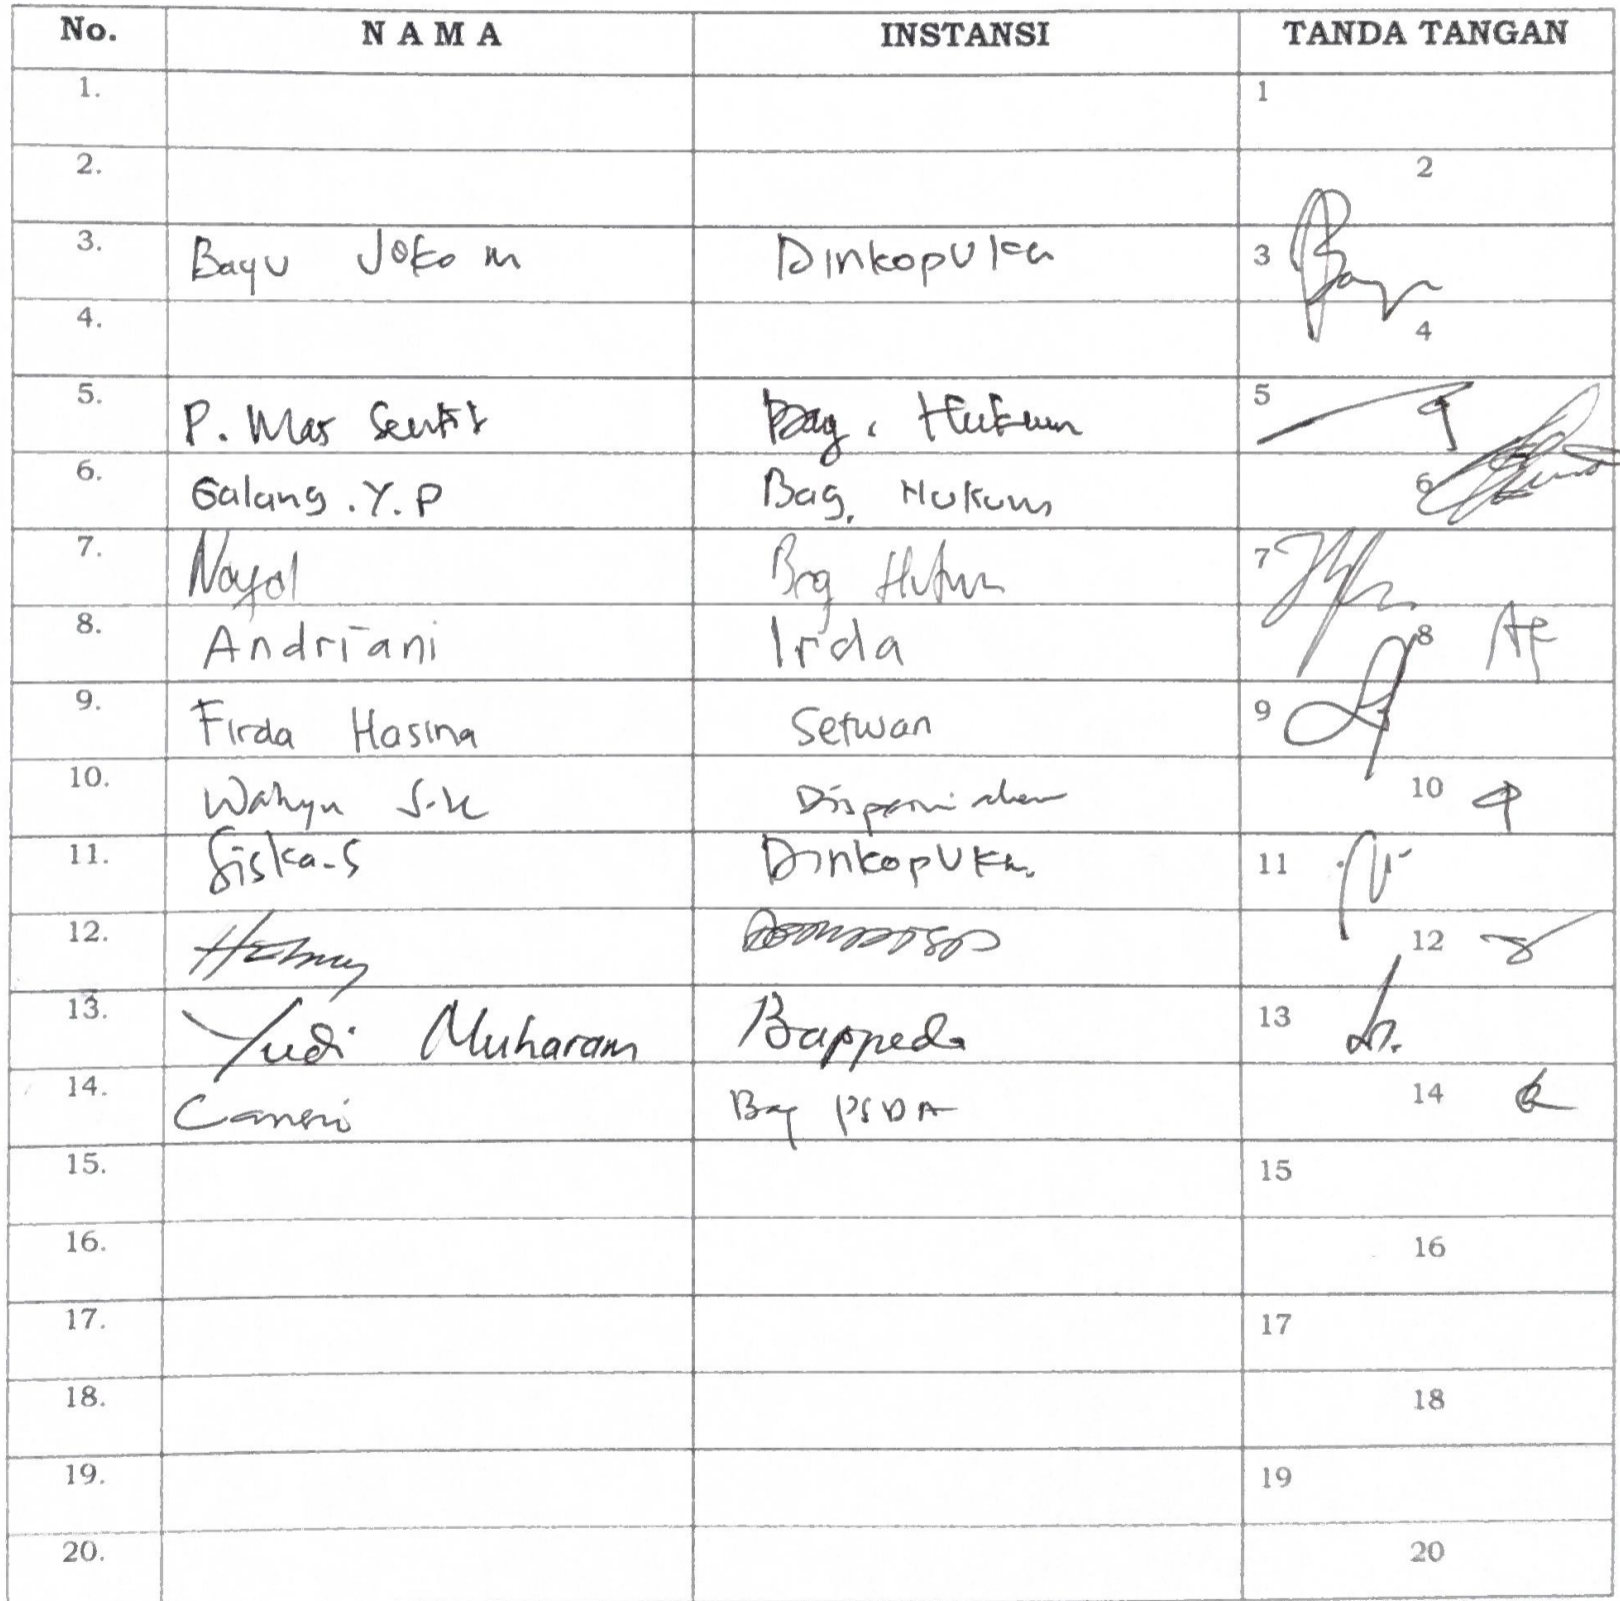 No. N A M A INSTANSI TANDA TANGAN
1. 1
2. 2
3. Bayu Joko M Dinkopuka 3
4. 4
5. P. Mas Bag. Hukum 5
6. Galang .Y.P Bag. Hukum 6
7. Nayal Bag Hukum 7
8. Andriani Irda 8
9. Firda Hasina Setwan 9
10. Wahyu S.K 10
11. Siska.S Dinkopuka. 11
12. 12
13. Yudi Muharam Bappeda 13
14. Bag PSDA 14
15. 15
16. 16
17. 17
18. 18
19. 19
20. 20